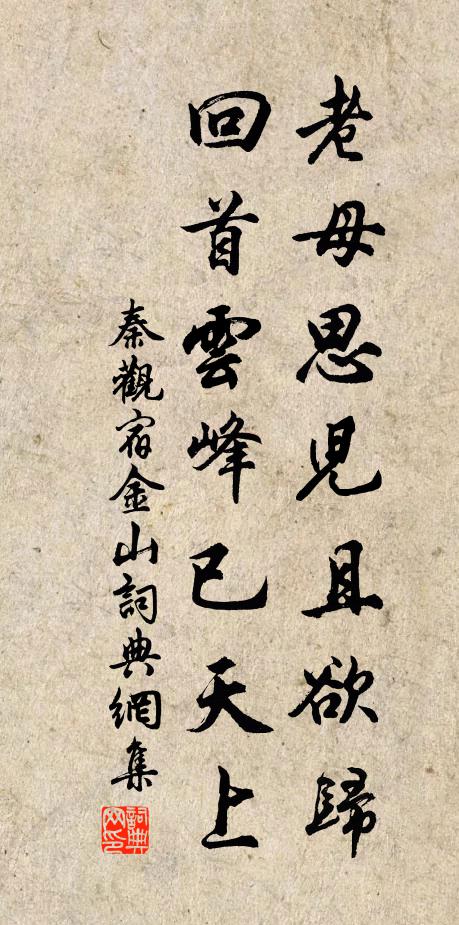 老母思児且欲歸
回首雲峰已天上
秦觀宿金山詞典網集
詞典網印